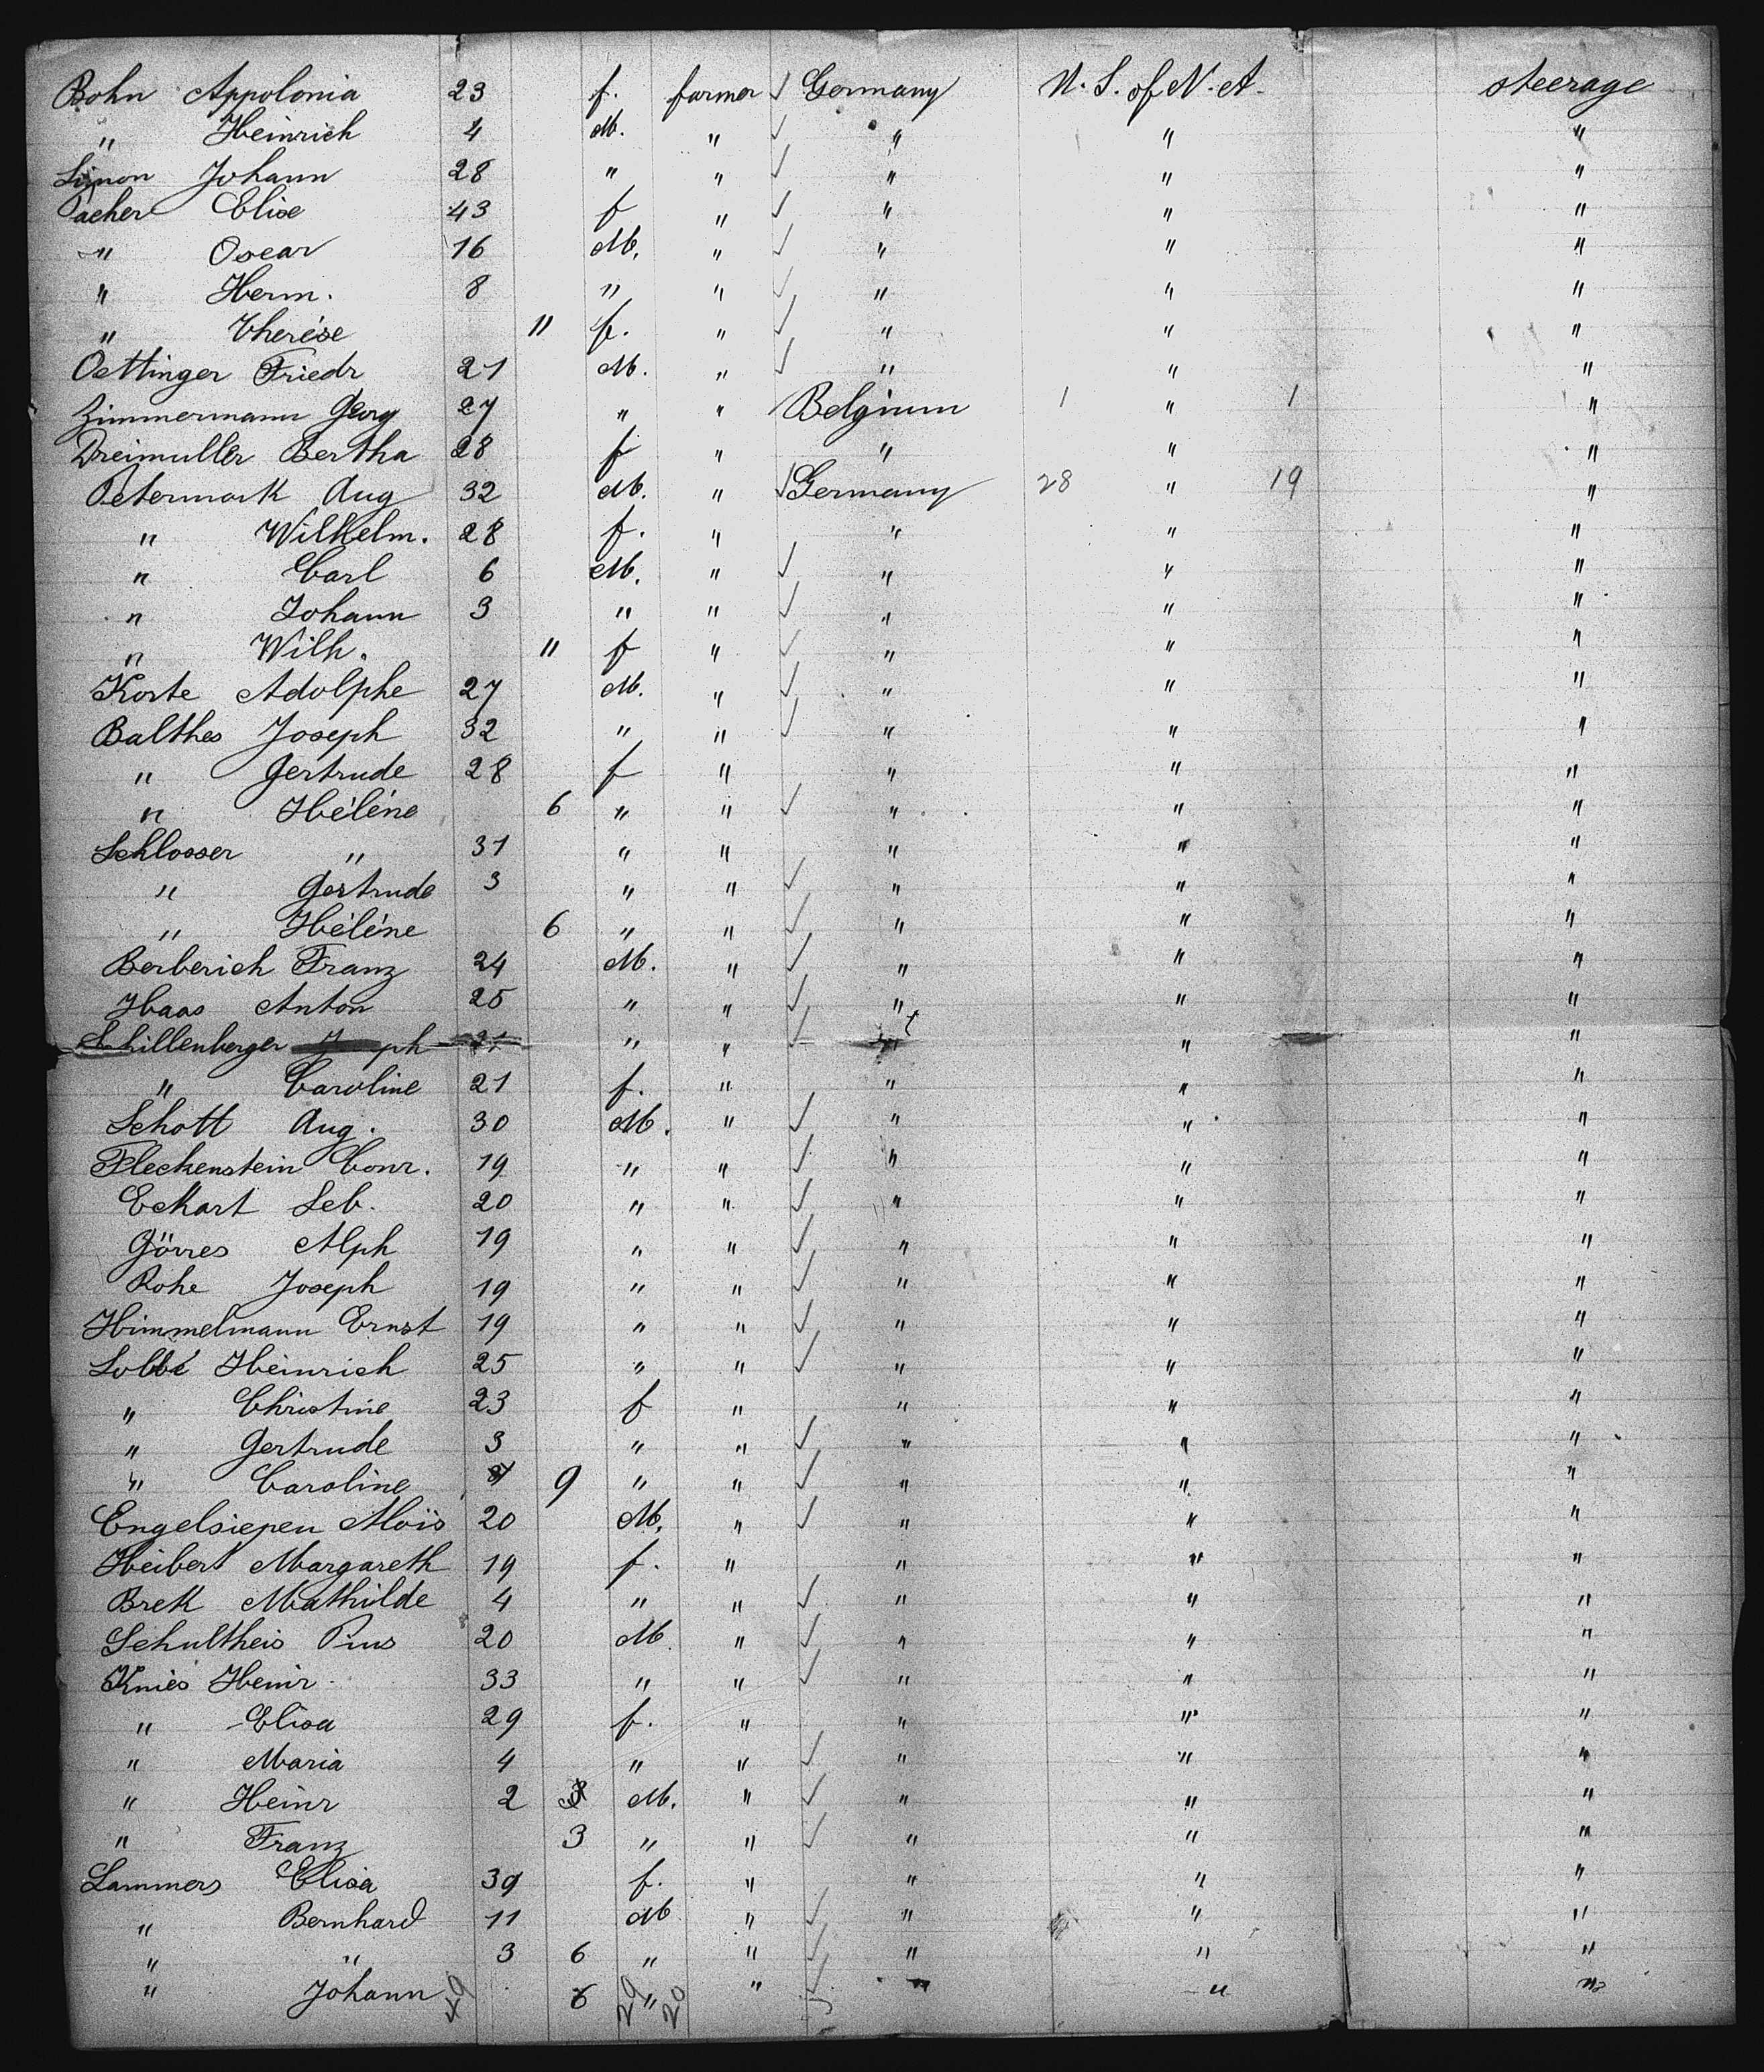 Bohn Appolonia 23 f. farmer ✓ Germany U. S. of N. A. steerage
" Heinrich 4 M. " ✓ " " "
Simon Johann 28 " " ✓ " " "
Pacher Elise 43 f " ✓ " " "
" Oscar 16 M. " ✓ " " "
" Herm. 8 " " ✓ " " "
" Therése 11 f. " ✓ " " "
Oettinger Friedr 21 M. " ✓ " " "
Zimmermann Georg 27 " " Belgium 1 " 1 "
Dreimuller Bertha 28 f " " " "
Petermark Aug 32 M. " ✓ Germany 28 " 19 "
" Wilhelm. 28 f. " " " "
" Carl 6 M. " ✓ " " "
" Johann 3 " " ✓ " " "
" Wilh. 11 f " ✓ " " "
Korte Adolphe 27 M. " ✓ " " "
Balthes Joseph 32 " " ✓ " " "
" Gertrude 28 f " " " "
" Héléne 6 " " ✓ " " "
Schlosser " 31 " " " " "
" Gertrude 3 " " ✓ " " "
" Héléne 6 " " ✓ " " "
Berberich Franz 24 M. " ✓ " " "
Haas Anton 25 " " ✓ " " "
Schillenberger ph 21 " " ✓ " "
" Caroline 21 f. " " " "
Schott Aug. 30 M. " ✓ " " "
Fleckenstein Conr. 19 " " ✓ " " "
Eckart Seb. 20 " " ✓ " " "
Görres Alph 19 " " ✓ " " "
Rohe Joseph 19 " " ✓ " " "
Himmelmann Ernst 19 " " ✓ " " "
Lobbé Heinrich 25 " " ✓ " " "
" Christine 23 f " " " "
" Gertrude 3 " " ✓ " " "
" Caroline 9 " " ✓ " " "
Engelsiepen Aloïs 20 M. " ✓ " " "
Heibert Margareth 19 f. " " " "
Brek Mathilde 4 " " ✓ " " "
Schultheis Pius 20 M. " ✓ " " "
Knies Heinr. 33 " " ✓ " " "
" Elisa 29 f. " " " "
" Maria 4 " " ✓ " " "
" Heinr 2 M. " ✓ " " "
" Franz 3 " " ✓ " " "
Lammers Elisa 39 f. " " " "
" Bernhard 11 M " ✓ " " "
" " 3 6 " " ✓ " " "
" Johann 6 " " ✓ " " "
49 29 20